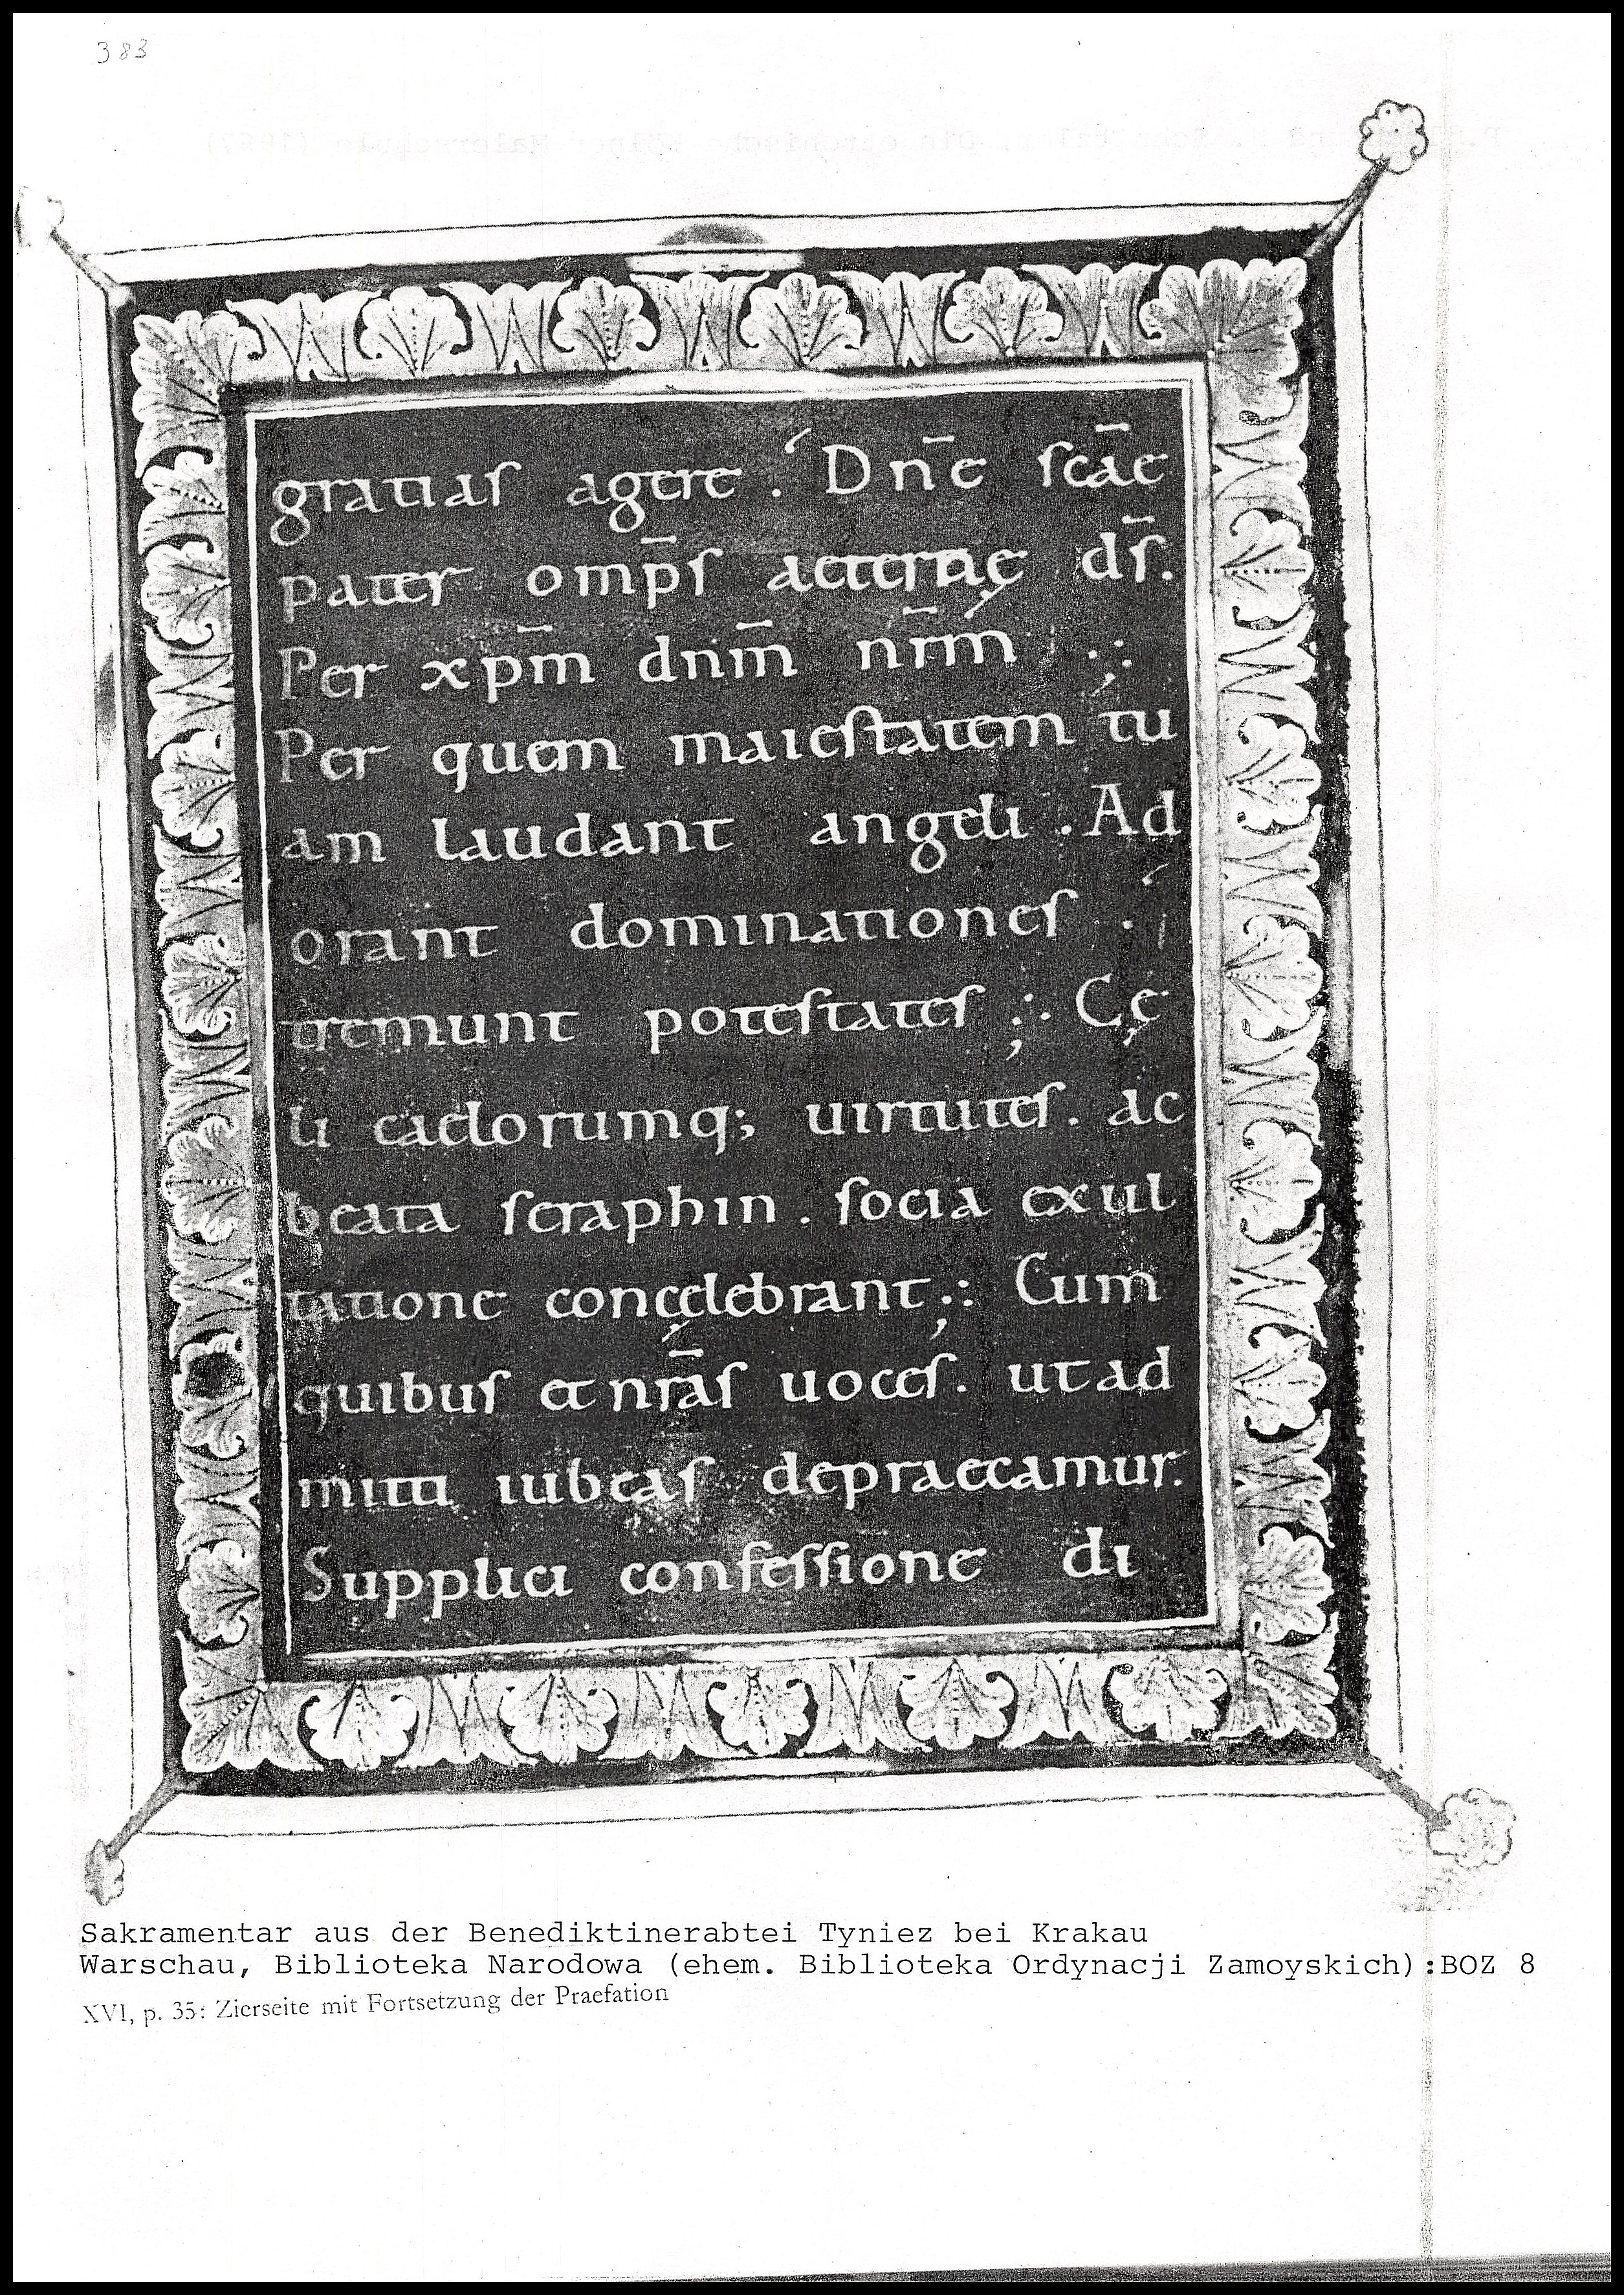 383
gratias agere . Dn̄e scāe
pater omp̄s aeternę ds̄.
Per xpm̄ dnm̄ nrm̄ .:
Per quem maiestatem tu
am laudant angeli . Ad
orant dominationes .
tremunt potestates ;. Cę
li caelorumq; uirtutes . ac
beata seraphin . socia exul
tatione concęlebrant ;. Cum
quibus et nrās uoces . ut ad
mitti iubeas depraecamur.
Supplici confessione di
Sakramentar aus der Benediktinerabtei Tyniez bei Krakau
Warschau, Biblioteka Narodowa (ehem. Biblioteka Ordynacji Zamoyskich):BOZ 8
XVI, p. 35: Zierseite mit Fortsetzung der Praefation